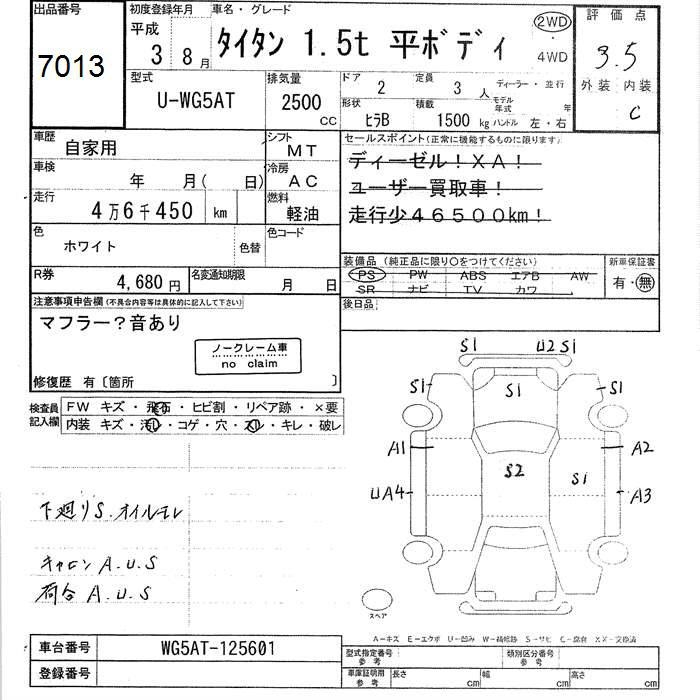 出品番号
7013
初度登録年月
平成
3 8月
車名・グレード
タイタン 1.5t 平ボディ
2WD
4WD
評価点
3.5
外装 内装
C
型式
U-WG5AT
排気量
2500
CC
ドア
2
定員
3 人
ディーラー・並行
形状
ヒラB
積載
1500 kg
モデル年式 年
ハンドル 左・右
車歴
自家用
シフト
MT
車検
年 月( 日)
冷房
AC
走行
4万6千450 km
燃料
軽油
色
ホワイト
色替
色コード
セールスポイント(正常に機能するものに限ります)
ディーゼル!XA!
ユーザー買取車!
走行少46500km!
装備品(純正品に限り○をつけてください)
PS PW ABS エアB AW
SR ナビ TV カワ
新車保証書
有・無
R券
4,680円
名変通知期限
月 日
後日品
注意事項申告欄(不具合内容等は具体的に記入して下さい)
マフラー?音あり
ノークレーム車
no claim
修復歴 有〔箇所 〕
検査員記入欄
FW キズ・飛石・ヒビ割・リペア跡・×要
内装 キズ・汚レ・コゲ・穴・スレ・キレ・破レ
下廻りS.オイルモレ
キャビンA.U.S
荷台A.U.S
S1 U2 S1
S1 S1 S1
A1 A2
S2 S1
UA4 A3
スペア
A-キズ E-エクボ U-凹み W-補修跡 S-サビ C-腐食 XX-交換済
車台番号
WG5AT-125601
登録番号
型式指定番号
参考
類別区分番号
参考
車庫証明用
参考
長さ cm
幅 cm
高さ cm